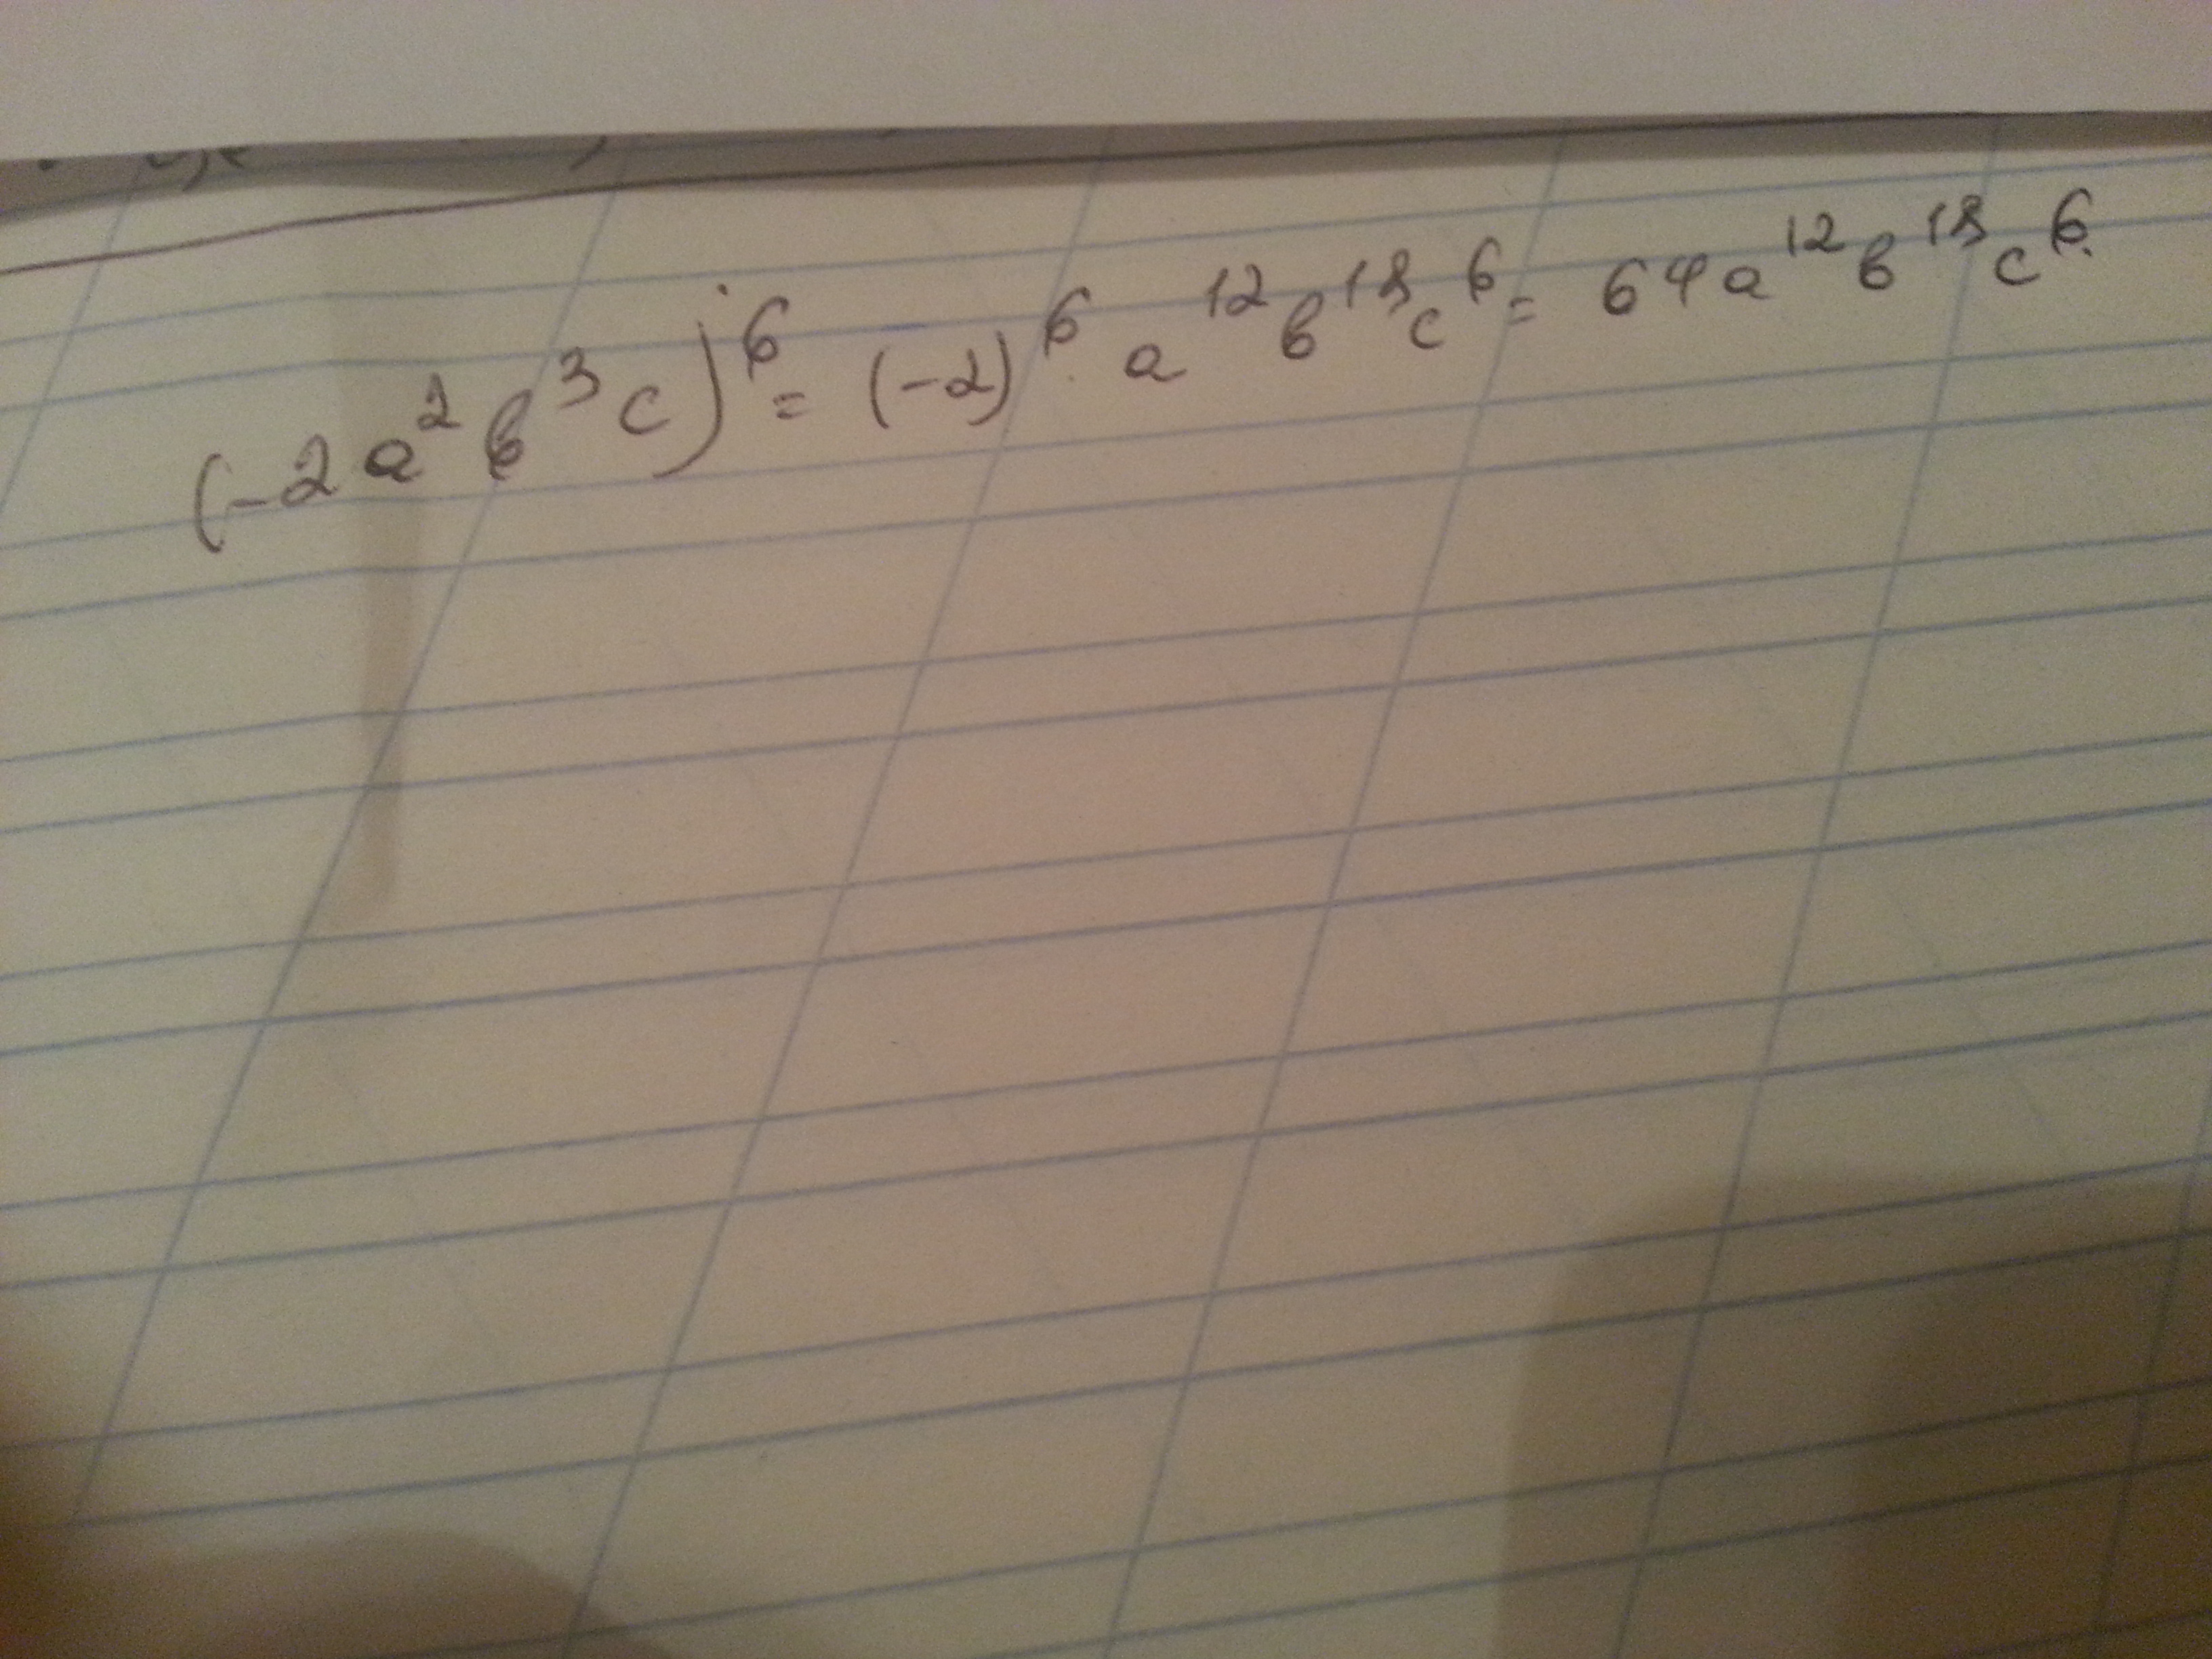 (-2a²b³c)⁶ = (-2)⁶ a¹²b¹⁸c⁶ = 64a¹²b¹⁸c⁶.